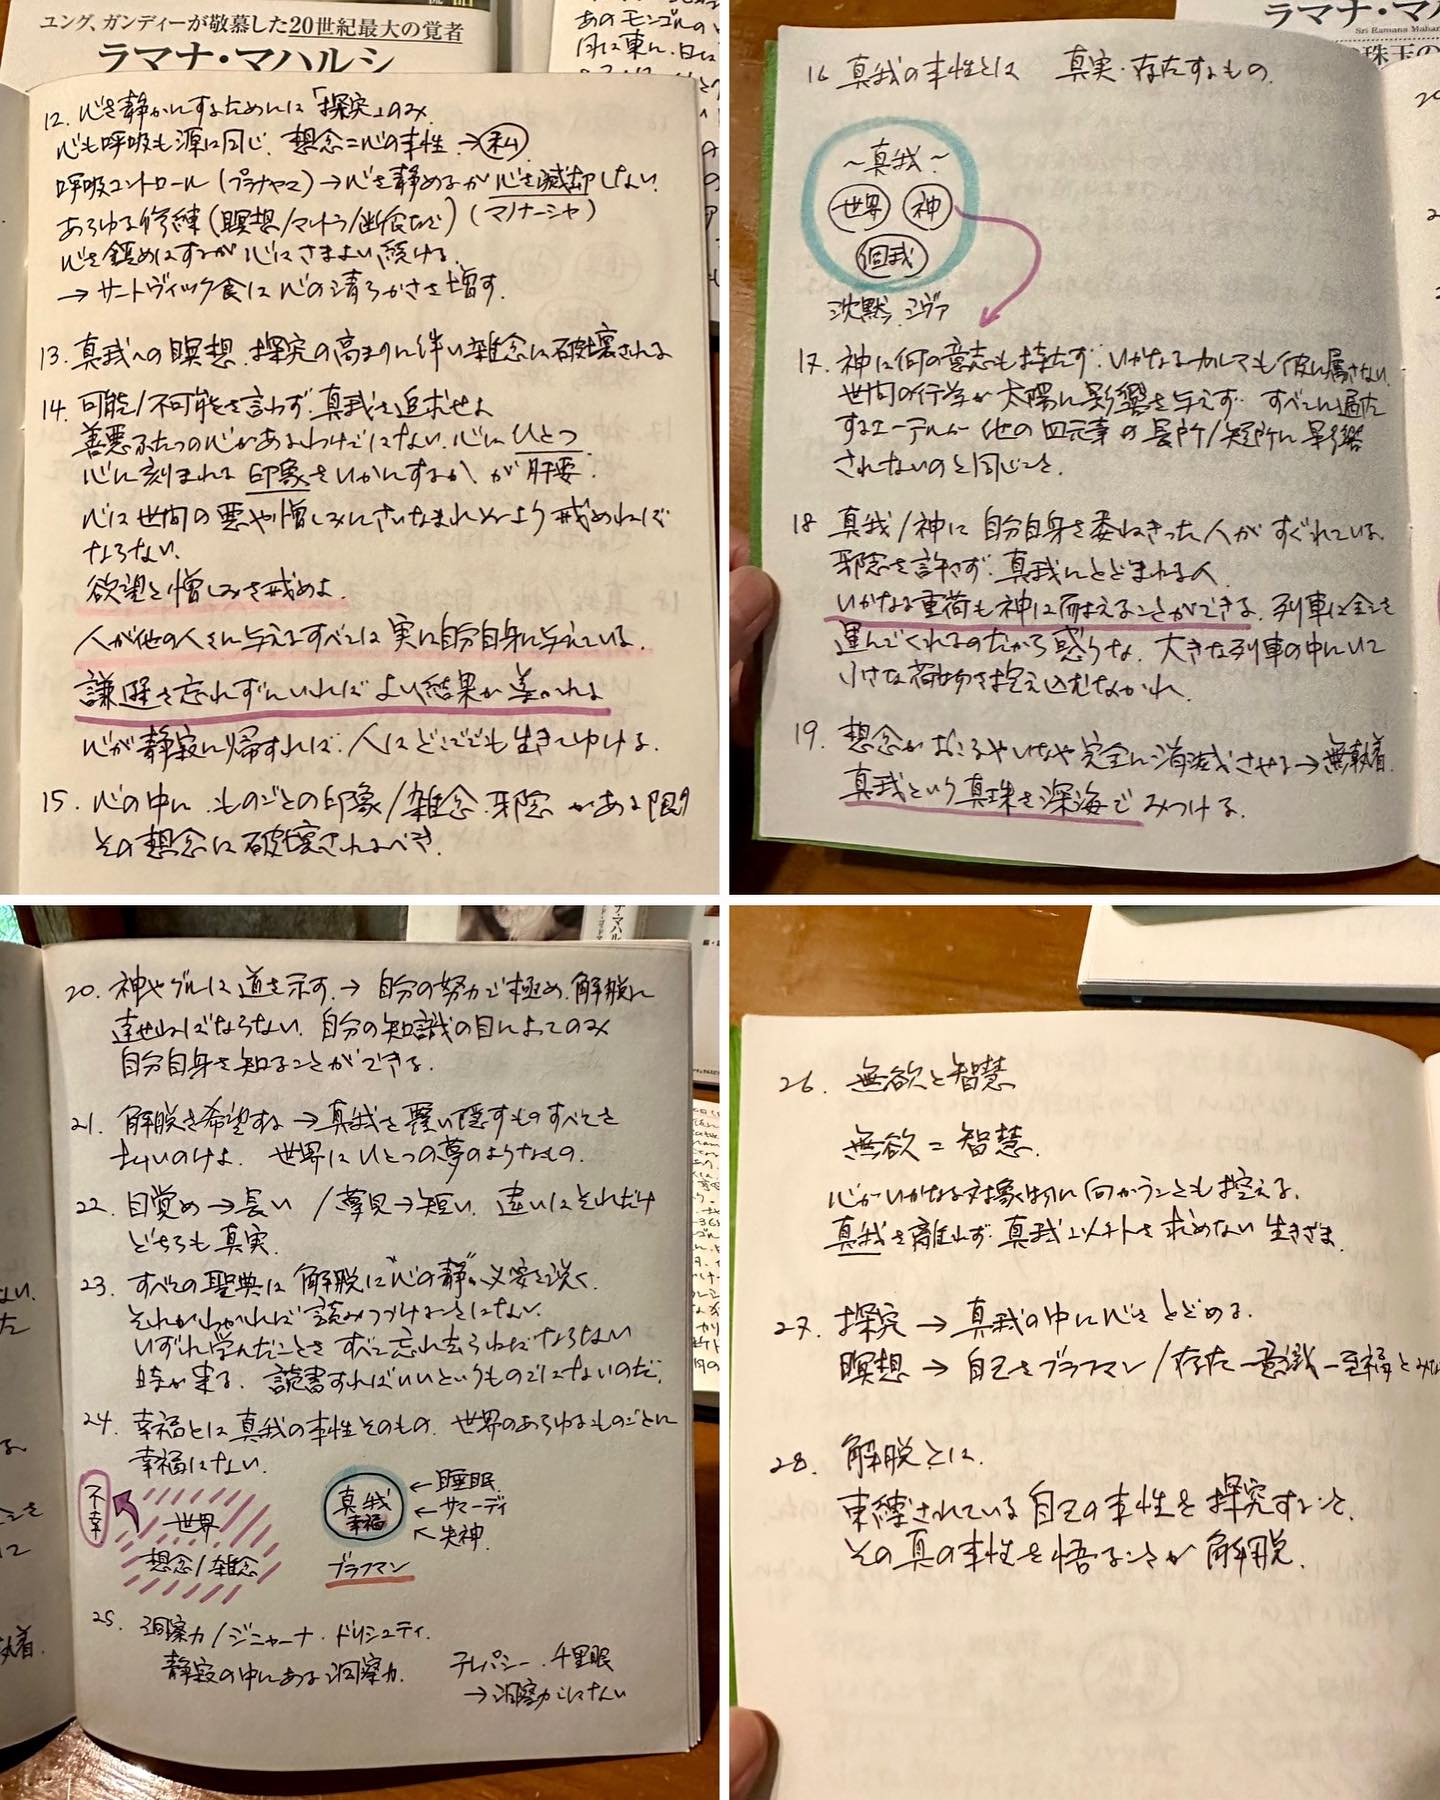 ユング、ガンディーが敬慕した20世紀最大の覚者
ラマナ・マハルシ
12. 心を静かにするためには「探究」のみ
心も呼吸も源は同じ. 想念=心の本性 → 私
呼吸コントロール (プラナヤマ) → 心を静めるが 心を滅却しない.
あらゆる修練 (瞑想/マントラ/断食など) (マノナーシャ)
心を鎮めはするが 心はさまよい続ける.
→ サートヴィック食は 心の清らかさを増す.
13. 真我への瞑想. 探究の高まりに伴い雑念は破壊される
14. 可能/不可能を言わず 真我を追求せよ
善悪ふたつの心があるわけではない. 心は ひとつ
心に刻まれる 印象をいかにするか が 肝要.
心は世間の悪や憎しみにさいなまれぬよう 戒めねば
ならない.
欲望と憎しみを戒めよ.
人が他の人々に与えるすべては 実は自分自身に与えている.
謙遜を忘れずにいれば よい結果が 導かれる
心が静寂に帰すれば. 人は どこででも生きてゆける.
15. 心の中に ものごとの印象/雑念. 邪念 がある限り
その想念は 破壊されるべき.
ラマナ・マ
Sri Ramana Mahar
珠玉の
16 真我の本性とは 真実・存在するもの.
~真我~
世界 神
個我
沈黙. シヴァ
17. 神は何の意志も持たず. いかなるカルマも 彼に属さない.
世間の行為が 太陽に影響を与えず. すべてに遍在
するエーテルが 他の四元素の長所/短所に 影響
されないのと同じこと.
18 真我/神に 自分自身を委ねきった人が すぐれている.
邪念を許さず. 真我にとどまれる人.
いかなる重荷も 神は耐えることができる. 列車は全てを
運んでくれるのだから惑うな. 大きな列車の中にいて
小さな荷物を抱え込むなかれ.
19. 想念が おこるやいなや 完全に消滅させる → 無執着.
真我という真珠を深海で みつける.
20. 神やグルは 道を示す. → 自分の努力で極め. 解脱に
達せねばならない. 自分の知識の目によってのみ
自分自身を知ることができる.
21. 解脱を希望する → 真我を覆い隠すものすべてを
払いのけよ. 世界はひとつの夢のようなもの.
22. 目覚め → 長い / 夢見 → 短い. 違いはそれだけ
どちらも 真実.
23. すべての聖典は 解脱には"心の静"が必要と説く.
それがわかれば 読みつづけることはない.
いずれ学んだことを すべて忘れ去らねばならない
時が来る. 読書すればいいというものではないのだ.
24. 幸福とは 真我の本性そのもの. 世界のあらゆるものごとに
幸福はない.
不幸
世界
想念/雑念
真我
幸福
←睡眠.
←サマーディ
←失神.
ブラフマン
25. 洞察力/ジニャーナ・ドリシュティ.
静寂の中にある洞察力. テレパシー・千里眼
→ 洞察力ではない
26. 無欲と智慧
無欲 = 智慧.
心がいかなる対象物に向かうことも控える.
真我を離れず. 真我以外を求めない 生きざま.
27. 探究 → 真我の中に心をとどめる.
瞑想 → 自己をブラフマン/存在-意識-至福とみな
28. 解脱とは.
束縛されている 自己の本性を 探究すること.
その真の本性を悟ることが 解脱.